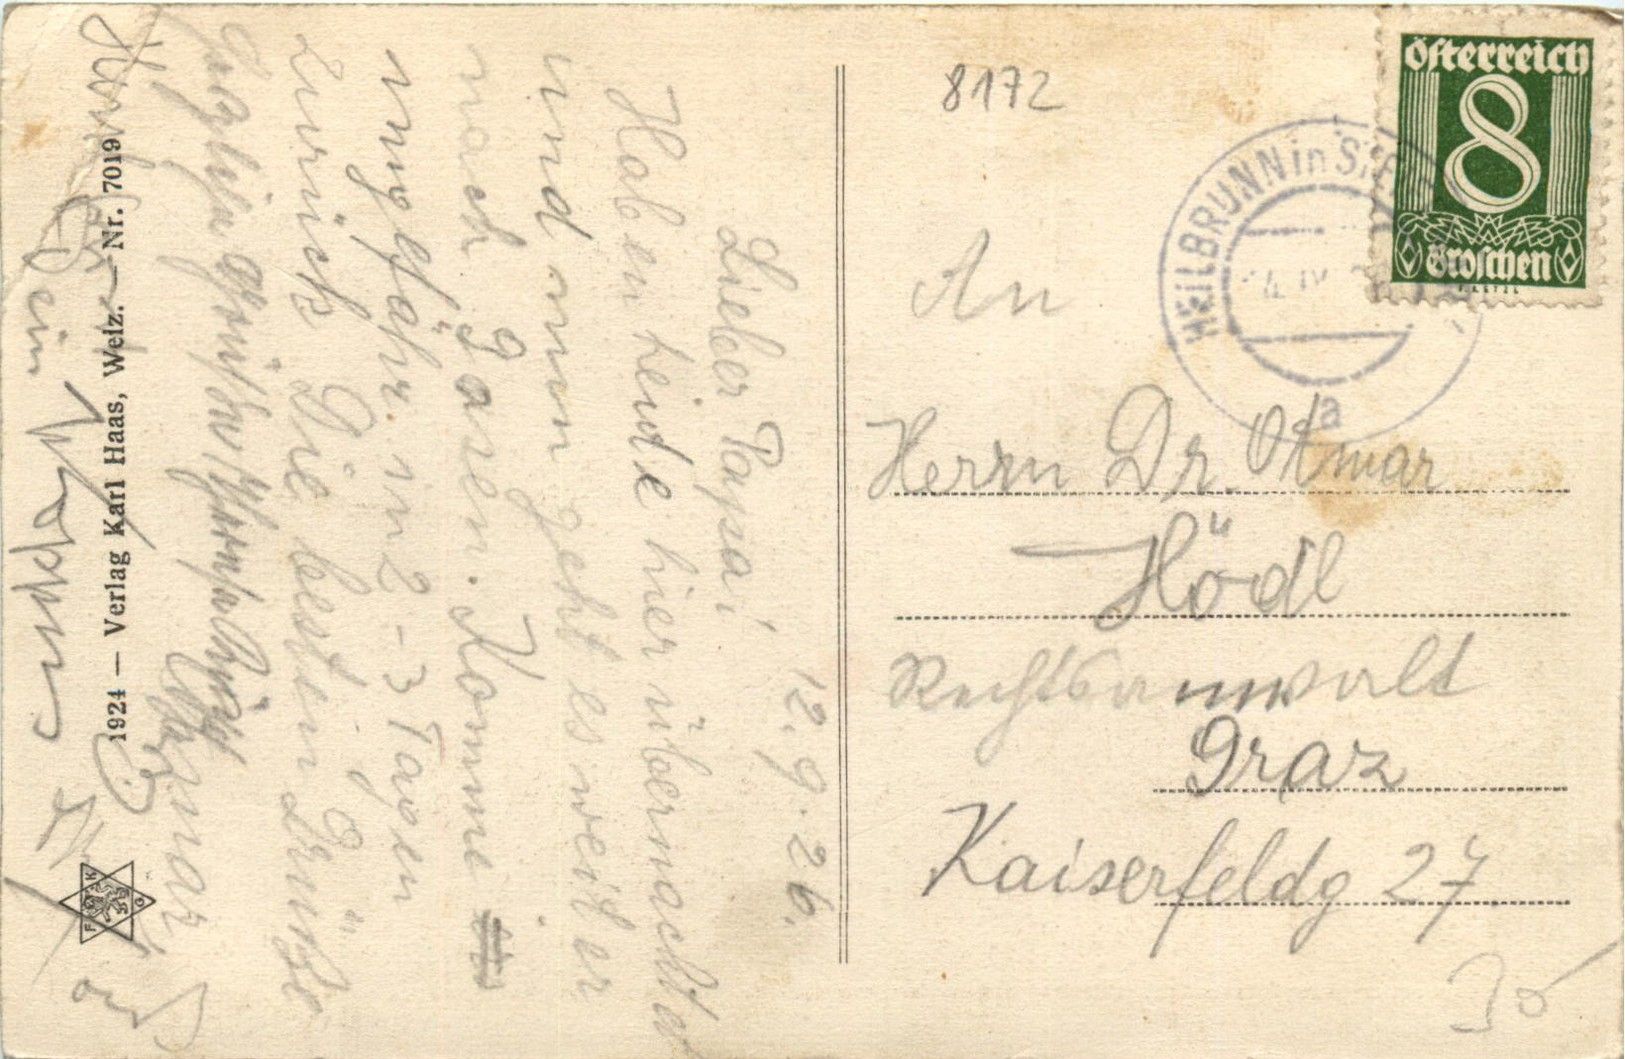 12.9.26.
Lieber Papa!
Haben heute hier übernachtet
und nun geht es weiter
nach Gasen. Komme
ungefähr in 2-3 Tagen
zurück Die besten Grüße
Otmar
1924 — Verlag Karl Haas, Weiz. — Nr. 7019
F K G
8172
Österreich
8
Groschen
HEILBRUNN in St
a
An
Herrn Dr. Otmar
Hödl
Rechtsanwalt
Graz
Kaiserfeldg 27